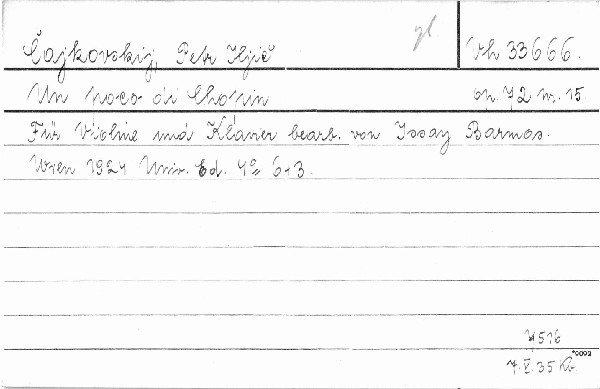 Čajkovskij, Petr Iljič Vh 33666.
Un poco di Chopin op. 72 nr. 15
Für Violine und Klavier bearb. von Issay Barmas.
Wien 1924 Univ. Ed. 4° 6+3.
4516
*9092
7. V. 35 Kr.